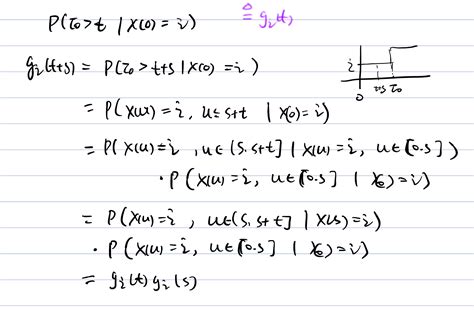 P(τ₀>t | X(0) = i) ≜ gᵢ(t)
gᵢ(t+s) = P(τ₀ > t+s | X(0) = i)
i
0 t+s τ₀
= P(X(u) = i, u ≤ s+t | X(0) = i)
= P(X(u) = i, u ∈ (s, s+t] | X(u) = i, u ∈ [0.s])
· P(X(u) = i, u ∈ [0.s] | X(0) = i)
= P(X(u) = i, u ∈ (s, s+t] | X(s) = i)
· P(X(u) = i, u ∈ [0.s] | X(0) = i)
= gᵢ(t) gᵢ(s)